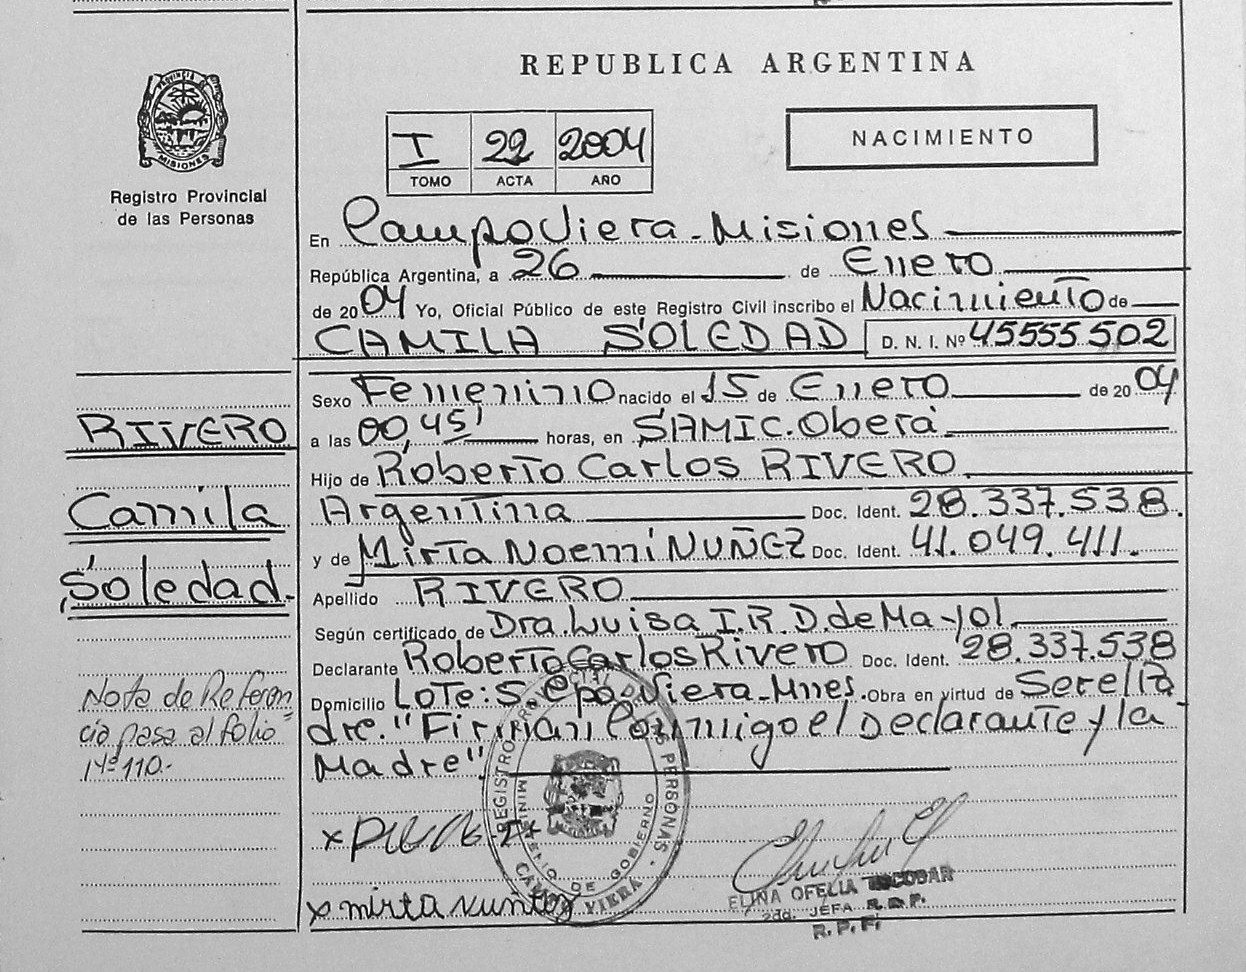 REPUBLICA ARGENTINA
PROVINCIA DE
MISIONES
Registro Provincial
de las Personas
I 22 2004
TOMO ACTA AÑO
NACIMIENTO
En Campo Viera - Misiones
República Argentina, a 26 de Enero
de 2004 Yo, Oficial Público de este Registro Civil inscribo el Nacimiento de
CAMILA SOLEDAD D. N. I. Nº 45555502
Sexo Femenino nacido el 15 de Enero de 2004
a las 00,45' horas, en SAMIC. Oberá
Hijo de Roberto Carlos RIVERO
Argentina Doc. Ident. 28.337.538.
y de Mirta Noemí NUÑEZ Doc. Ident. 41.049.411.
Apellido RIVERO
Según certificado de Dra. Luisa I.R.D. de Mayol
Declarante Roberto Carlos Rivero Doc. Ident. 28.337.538
Domicilio LoTe: 5 Cpo. Viera - Mnes. Obra en virtud de Ser el Pa
dre. "Firman Conmigo el Declarante y la
Madre"
RIVERO
Camila
Soledad.
Nota de Referen
cia pasa al folio
Nº 110.-
REGISTRO PROVINCIAL DE LAS PERSONAS -
MINISTERIO DE GOBIERNO
CAMPO VIERA
x mirta nuñez
ELINA OFELIA ESCOBAR
2da. JEFA R.D.P.
R.P.F.